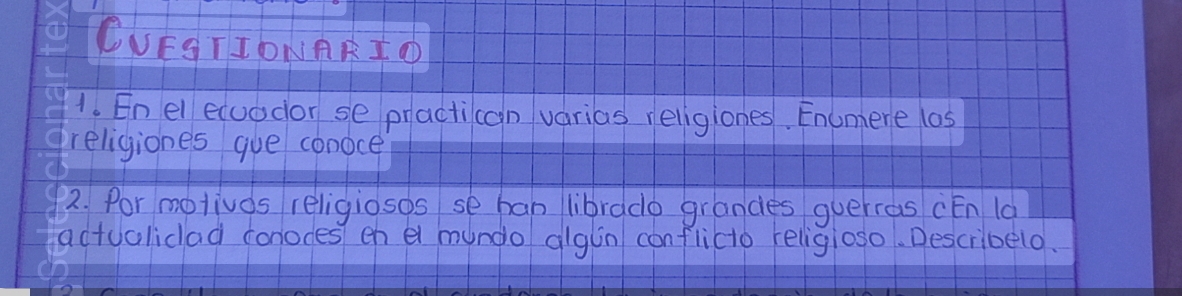 CUESTIONARIO
1. En el ecuador se practican varias religiones. Enumere las
religiones que conoce
2. Por motivos religiosos se han librado grandes guerras ¿En la
actualidad conoces en el mundo algún conflicto religioso. Describelo.
Seleccionar tex